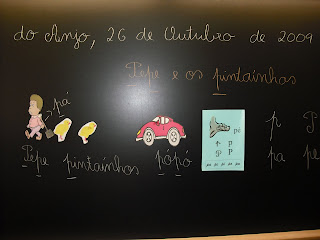 do Anjo, 26 de Outubro de 2009
Pepe e os pintainhos
pá
pé
p P
p
P P
Pepe pintainhos pópó
pa pe